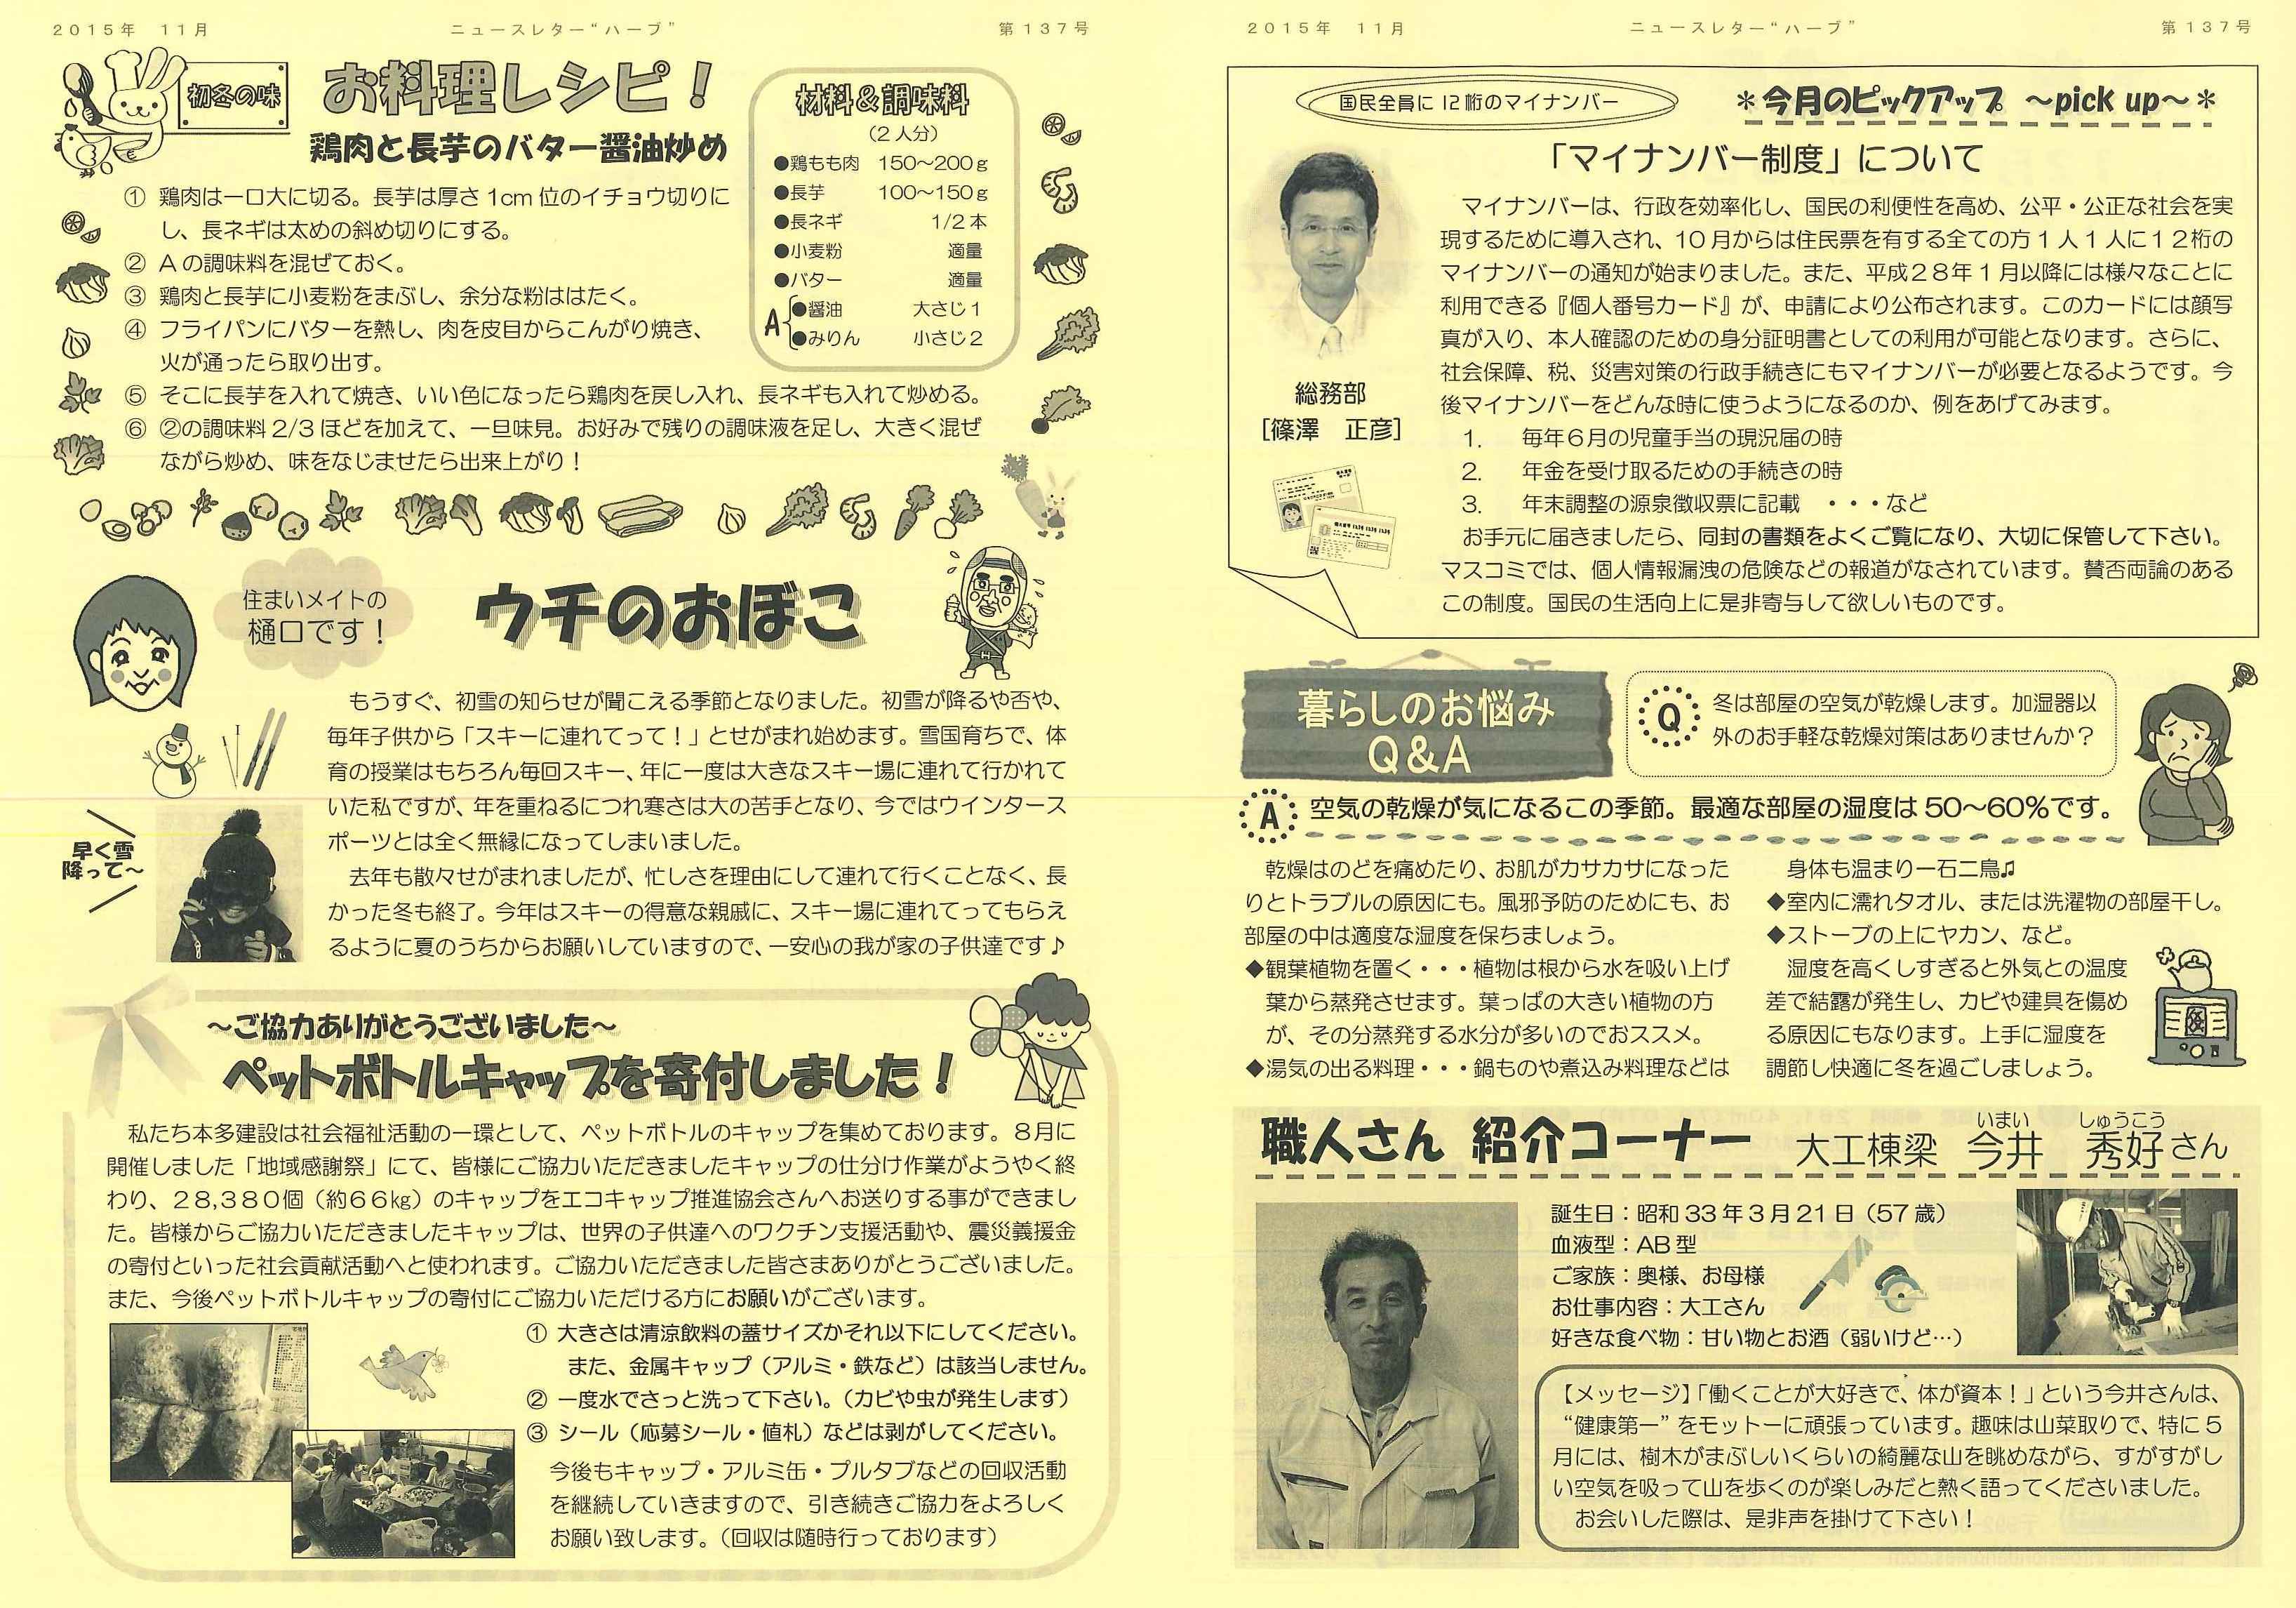 ２０１５年　１１月
ニュースレター“ハーブ”
第１３７号
初冬の味
お料理レシピ！
鶏肉と長芋のバター醤油炒め
① 鶏肉は一口大に切る。長芋は厚さ1cm位のイチョウ切りに
し、長ネギは太めの斜め切りにする。
② Aの調味料を混ぜておく。
③ 鶏肉と長芋に小麦粉をまぶし、余分な粉ははたく。
④ フライパンにバターを熱し、肉を皮目からこんがり焼き、
火が通ったら取り出す。
⑤ そこに長芋を入れて焼き、いい色になったら鶏肉を戻し入れ、長ネギも入れて炒める。
⑥ ②の調味料2/3ほどを加えて、一旦味見。お好みで残りの調味液を足し、大きく混ぜ
ながら炒め、味をなじませたら出来上がり！
材料＆調味料
（２人分）
●鶏もも肉　150～200ｇ
●長芋　100～150ｇ
●長ネギ　1/2本
●小麦粉　適量
●バター　適量
A
●醤油　大さじ１
●みりん　小さじ２
住まいメイトの
樋口です！
ウチのおぼこ
もうすぐ、初雪の知らせが聞こえる季節となりました。初雪が降るや否や、
毎年子供から「スキーに連れてって！」とせがまれ始めます。雪国育ちで、体
育の授業はもちろん毎回スキー、年に一度は大きなスキー場に連れて行かれて
いた私ですが、年を重ねるにつれ寒さは大の苦手となり、今ではウインタース
ポーツとは全く無縁になってしまいました。
去年も散々せがまれましたが、忙しさを理由にして連れて行くことなく、長
かった冬も終了。今年はスキーの得意な親戚に、スキー場に連れてってもらえ
るように夏のうちからお願いしていますので、一安心の我が家の子供達です♪
早く雪
降って～
～ご協力ありがとうございました～
ペットボトルキャップを寄付しました！
私たち本多建設は社会福祉活動の一環として、ペットボトルのキャップを集めております。８月に
開催しました「地域感謝祭」にて、皆様にご協力いただきましたキャップの仕分け作業がようやく終
わり、２８,３８０個（約６６㎏）のキャップをエコキャップ推進協会さんへお送りする事ができまし
た。皆様からご協力いただきましたキャップは、世界の子供達へのワクチン支援活動や、震災義援金
の寄付といった社会貢献活動へと使われます。ご協力いただきました皆さまありがとうございました。
また、今後ペットボトルキャップの寄付にご協力いただける方にお願いがございます。
① 大きさは清涼飲料の蓋サイズかそれ以下にしてください。
また、金属キャップ（アルミ・鉄など）は該当しません。
② 一度水でさっと洗って下さい。（カビや虫が発生します）
③ シール（応募シール・値札）などは剥がしてください。
今後もキャップ・アルミ缶・プルタブなどの回収活動
を継続していきますので、引き続きご協力をよろしく
お願い致します。（回収は随時行っております）
２０１５年　１１月
ニュースレター“ハーブ”
第１３７号
国民全員に12桁のマイナンバー
＊今月のピックアップ　～pick up～＊
「マイナンバー制度」について
マイナンバーは、行政を効率化し、国民の利便性を高め、公平・公正な社会を実
現するために導入され、10月からは住民票を有する全ての方１人１人に１２桁の
マイナンバーの通知が始まりました。また、平成２８年１月以降には様々なことに
利用できる『個人番号カード』が、申請により公布されます。このカードには顔写
真が入り、本人確認のための身分証明書としての利用が可能となります。さらに、
社会保障、税、災害対策の行政手続きにもマイナンバーが必要となるようです。今
後マイナンバーをどんな時に使うようになるのか、例をあげてみます。
1.　毎年６月の児童手当の現況届の時
2.　年金を受け取るための手続きの時
3.　年末調整の源泉徴収票に記載　・・・など
お手元に届きましたら、同封の書類をよくご覧になり、大切に保管して下さい。
マスコミでは、個人情報漏洩の危険などの報道がなされています。賛否両論のある
この制度。国民の生活向上に是非寄与して欲しいものです。
総務部
［篠澤　正彦］
暮らしのお悩み
Q&A
Q
冬は部屋の空気が乾燥します。加湿器以
外のお手軽な乾燥対策はありませんか？
A
空気の乾燥が気になるこの季節。最適な部屋の湿度は50～60％です。
乾燥はのどを痛めたり、お肌がカサカサになった
りとトラブルの原因にも。風邪予防のためにも、お
部屋の中は適度な湿度を保ちましょう。
◆観葉植物を置く・・・植物は根から水を吸い上げ
葉から蒸発させます。葉っぱの大きい植物の方
が、その分蒸発する水分が多いのでおススメ。
◆湯気の出る料理・・・鍋ものや煮込み料理などは
身体も温まり一石二鳥♫
◆室内に濡れタオル、または洗濯物の部屋干し。
◆ストーブの上にヤカン、など。
湿度を高くしすぎると外気との温度
差で結露が発生し、カビや建具を傷め
る原因にもなります。上手に湿度を
調節し快適に冬を過ごしましょう。
職人さん 紹介コーナー
いまい　しゅうこう
大工棟梁　今井　秀好さん
誕生日：昭和33年３月21日（57歳）
血液型：AB型
ご家族：奥様、お母様
お仕事内容：大工さん
好きな食べ物：甘い物とお酒（弱いけど…）
【メッセージ】「働くことが大好きで、体が資本！」という今井さんは、
“健康第一”をモットーに頑張っています。趣味は山菜取りで、特に５
月には、樹木がまぶしいくらいの綺麗な山を眺めながら、すがすがし
い空気を吸って山を歩くのが楽しみだと熱く語ってくださいました。
お会いした際は、是非声を掛けて下さい！